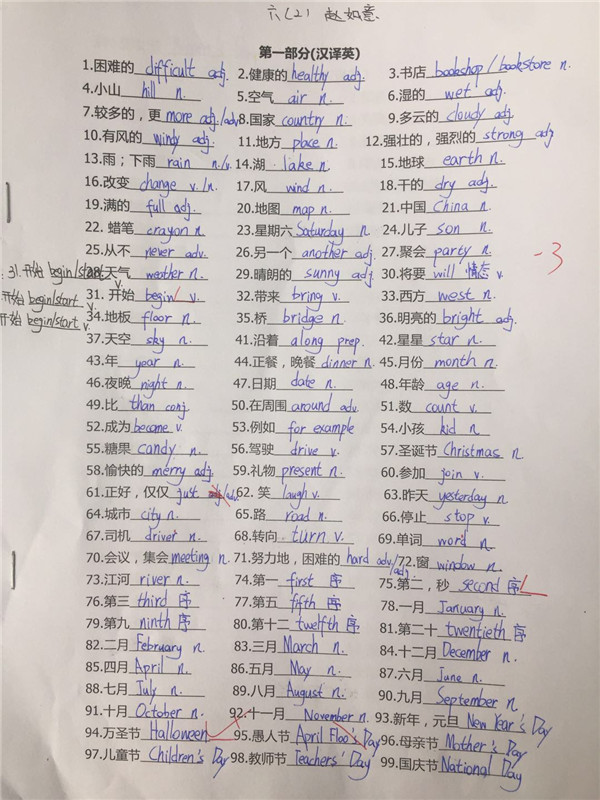 六(2) 赵如意
第一部分(汉译英)
1.困难的 difficult adj. 2.健康的 healthy adj. 3.书店 bookshop/bookstore n.
4.小山 hill n. 5.空气 air n. 6.湿的 wet adj.
7.较多的，更 more adj./adv 8.国家 country n. 9.多云的 cloudy adj.
10.有风的 windy adj. 11.地方 place n. 12.强壮的，强烈的 strong adj
13.雨；下雨 rain n./v. 14.湖 lake n. 15.地球 earth n.
16.改变 change v./n. 17.风 wind n. 18.干的 dry adj.
19.满的 full adj. 20.地图 map n. 21.中国 China n.
22. 蜡笔 crayon n. 23.星期六 Saturday n. 24.儿子 son n.
25.从不 never adv. 26.另一个 another adj. 27.聚会 party n. -3
31.开始 begin/start v. 28.天气 weather n. 29.晴朗的 sunny adj. 30.将要 will 情态 v.
开始 begin/start v. 31. 开始 begin/ v. 32.带来 bring v. 33.西方 west n.
开始 begin/start v. 34.地板 floor n. 35.桥 bridge n. 36.明亮的 bright adj.
37.天空 sky n. 41.沿着 along prep. 42.星星 star n.
43.年 year n. 44.正餐，晚餐 dinner n. 45.月份 month n.
46.夜晚 night n. 47.日期 date n. 48.年龄 age n.
49.比 than conj 50.在周围 around adv. 51.数 count v.
52.成为 become v. 53.例如 for example 54.小孩 kid n
55.糖果 candy n. 56.驾驶 drive v. 57.圣诞节 Christmas n
58.愉快的 merry adj. 59.礼物 present n. 60.参加 join v.
61.正好，仅仅 just 62. 笑 laugh v. 63.昨天 yesterday n
64.城市 city n. 65.路 road n. 66.停止 stop v.
67.司机 driver n. 68.转向 turn v. 69.单词 word n
70.会议，集会 meeting n. 71.努力地，困难的 hard adv/adj. 72.窗 window n.
73.江河 river n. 74.第一 first 序 75.第二，秒 second 序
76.第三 third 序 77.第五 fifth 序 78.一月 January n.
79.第九 ninth 序 80.第十二 twelfth 序 81.第二十 twentieth 序
82.二月 February n. 83.三月 March n. 84.十二月 December n.
85.四月 April n. 86.五月 May n. 87.六月 June n.
88.七月 July n. 89.八月 August n. 90.九月 September n
91.十月 October n. 92.十一月 November n. 93.新年，元旦 New Year's Day
94.万圣节 Halloween 95.愚人节 April Floo's Day 96.母亲节 Mother's Day
97.儿童节 Children's Day 98.教师节 Teachers' Day 99.国庆节 National Day